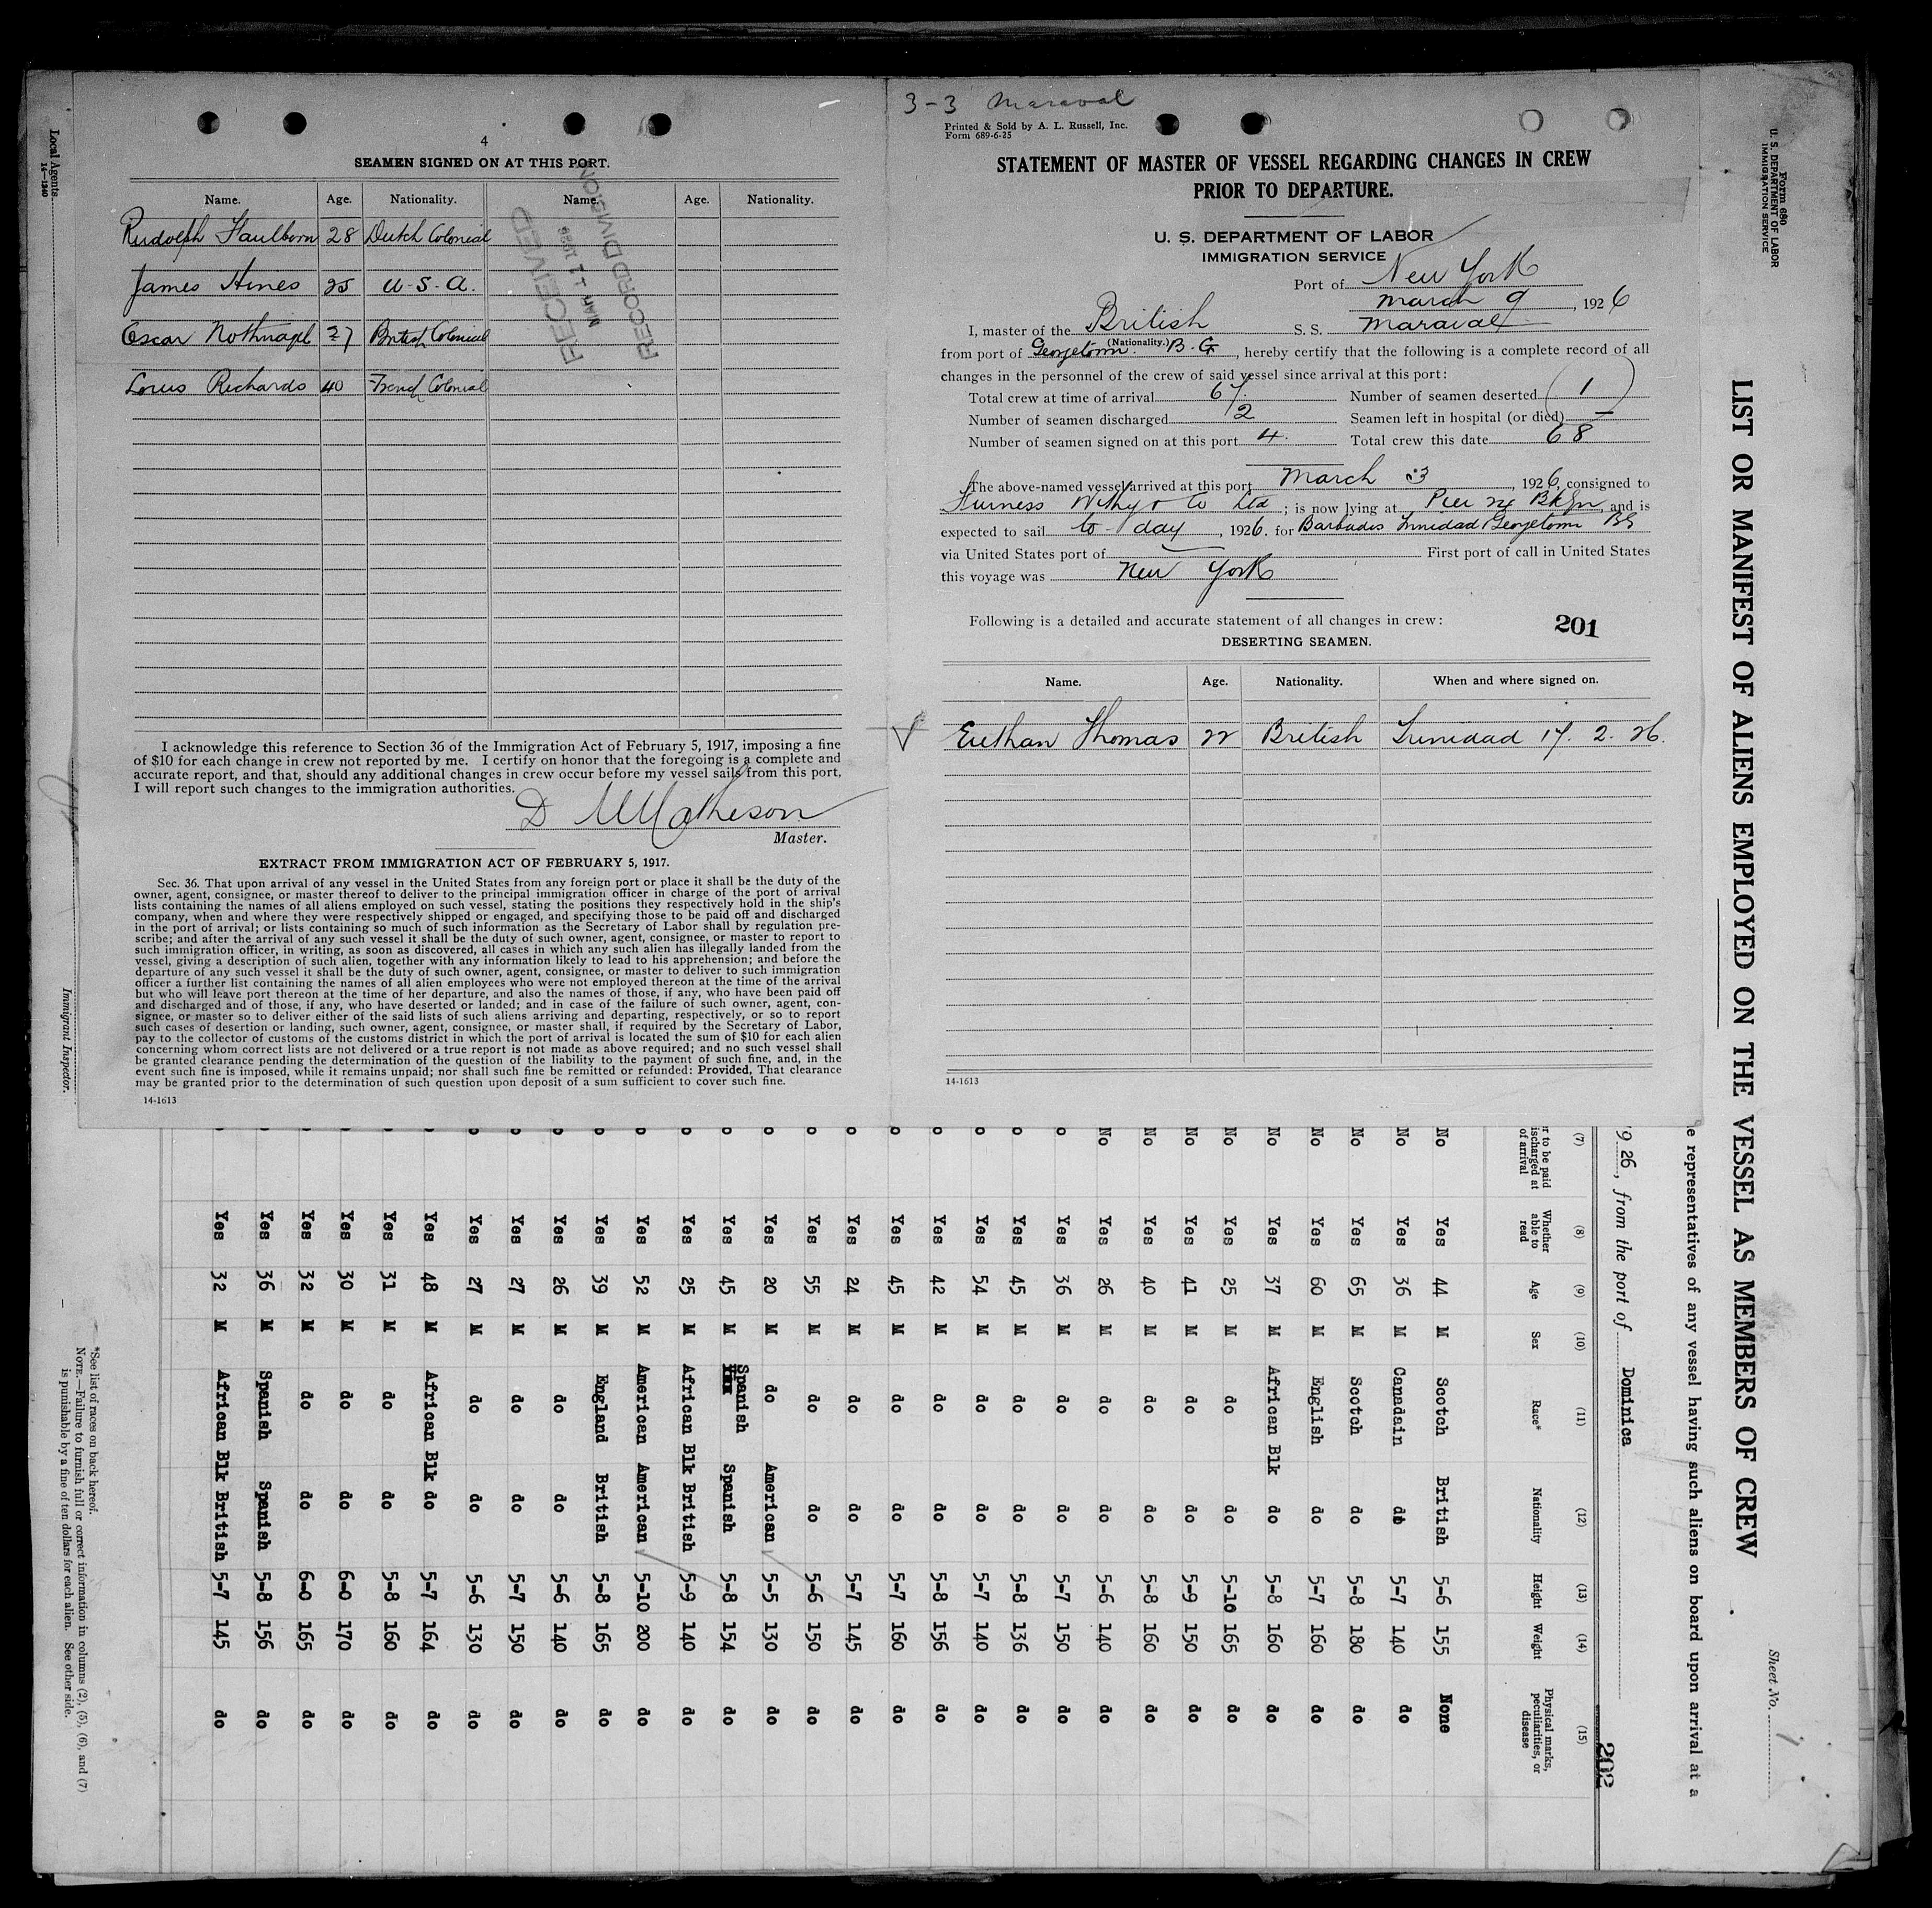 4
SEAMEN SIGNED ON AT THIS PORT.
Name. Age. Nationality. Name. Age. Nationality.
Rudolph Haulborn 28 Dutch Colonial
James Hines 25 U.S.A.
Oscar Nothnagel 27 British Colonial
Louis Richards 40 French Colonial
RECEIVED
MAR 11 1926
RECORD DIVISION
I acknowledge this reference to Section 36 of the Immigration Act of February 5, 1917, imposing a fine
of $10 for each change in crew not reported by me. I certify on honor that the foregoing is a complete and
accurate report, and that, should any additional changes in crew occur before my vessel sails from this port,
I will report such changes to the immigration authorities.
Master.
EXTRACT FROM IMMIGRATION ACT OF FEBRUARY 5, 1917.
Sec. 36. That upon arrival of any vessel in the United States from any foreign port or place it shall be the duty of the
owner, agent, consignee, or master thereof to deliver to the principal immigration officer in charge of the port of arrival
lists containing the names of all aliens employed on such vessel, stating the positions they respectively hold in the ship's
company, when and where they were respectively shipped or engaged, and specifying those to be paid off and discharged
in the port of arrival; or lists containing so much of such information as the Secretary of Labor shall by regulation pre-
scribe; and after the arrival of any such vessel it shall be the duty of such owner, agent, consignee, or master to report to
such immigration officer, in writing, as soon as discovered, all cases in which any such alien has illegally landed from the
vessel, giving a description of such alien, together with any information likely to lead to his apprehension; and before the
departure of any such vessel it shall be the duty of such owner, agent, consignee, or master to deliver to such immigration
officer a further list containing the names of all alien employees who were not employed thereon at the time of the arrival
but who will leave port thereon at the time of her departure, and also the names of those, if any, who have been paid off
and discharged and of those, if any, who have deserted or landed; and in case of the failure of such owner, agent, con-
signee, or master so to deliver either of the said lists of such aliens arriving and departing, respectively, or so to report
such cases of desertion or landing, such owner, agent, consignee, or master shall, if required by the Secretary of Labor,
pay to the collector of customs of the customs district in which the port of arrival is located the sum of $10 for each alien
concerning whom correct lists are not delivered or a true report is not made as above required; and no such vessel shall
be granted clearance pending the determination of the question of the liability to the payment of such fine, and, in the
event such fine is imposed, while it remains unpaid; nor shall such fine be remitted or refunded: Provided, That clearance
may be granted prior to the determination of such question upon deposit of a sum sufficient to cover such fine.
14-1613
3-3 Maraval
Printed & Sold by A. L. Russell, Inc.
Form 689-6-25
STATEMENT OF MASTER OF VESSEL REGARDING CHANGES IN CREW
PRIOR TO DEPARTURE.
U. S. DEPARTMENT OF LABOR
IMMIGRATION SERVICE
Port of New York
March 9, 1926
I, master of the British S. S. Maraval
(Nationality.)
from port of Georgetown B.G, hereby certify that the following is a complete record of all
changes in the personnel of the crew of said vessel since arrival at this port:
Total crew at time of arrival 67. Number of seamen deserted 1
Number of seamen discharged 2 Seamen left in hospital (or died) —
Number of seamen signed on at this port 4. Total crew this date 68
The above-named vessel arrived at this port March 3, 1926, consigned to
Furness Withy & Co Ltd; is now lying at Pier 24 Bklyn, and is
expected to sail to day, 1926. for Barbados Trinidad Georgetown BG
via United States port of — First port of call in United States
this voyage was New York
Following is a detailed and accurate statement of all changes in crew:
201
DESERTING SEAMEN.
Name. Age. Nationality. When and where signed on.
Euthan Thomas 22 British Trinidad 17. 2. 26.
14-1613
Form 680
U. S. DEPARTMENT OF LABOR
IMMIGRATION SERVICE
Sheet No. 1
LIST OR MANIFEST OF ALIENS EMPLOYED ON THE VESSEL AS MEMBERS OF CREW
e representatives of any vessel having such aliens on board upon arrival at a
1926, from the port of Dominica
202
(7) (8) (9) (10) (11) (12) (13) (14) (15)
r to be paid
ischarged at
of arrival
Whether
able to
read
Age
Sex
Race*
Nationality
Height
Weight
Physical marks,
peculiarities, or
disease
No Yes 44 M Scotch British 5-6 155 None
No Yes 36 M Canadain do 5-7 140 do
No Yes 65 M Scotch do 5-8 180 do
No Yes 60 M English do 5-7 160 do
No Yes 37 M African Blk do 5-8 160 do
No Yes 25 M do do 5-10 165 do
No Yes 41 M do do 5-9 150 do
No Yes 40 M do do 5-8 160 do
No Yes 26 M do do 5-6 140 do
o Yes 36 M do do 5-7 150 do
o Yes 45 M do do 5-8 136 do
o Yes 54 M do do 5-7 140 do
o Yes 42 M do do 5-8 156 do
o Yes 45 M do do 5-7 160 do
o Yes 24 M do do 5-7 145 do
o Yes 55 M do do 5-6 150 do
o Yes 20 M do American 5-5 130 do
o Yes 45 M Spanish Spanish 5-8 154 do
o Yes 25 M African Blk British 5-9 140 do
o Yes 52 M American American 5-10 200 do
o Yes 39 M England British 5-8 165 do
o Yes 26 M do do 5-6 140 do
o Yes 27 M do do 5-7 150 do
o Yes 27 M do do 5-6 130 do
o Yes 48 M African Blk do 5-7 164 do
o Yes 31 M do do 5-8 160 do
o Yes 30 M do do 6-0 170 do
o Yes 32 M do do 6-0 165 do
o Yes 36 M Spanish Spanish 5-8 156 do
o Yes 32 M African Blk British 5-7 145 do
Local Agents
14-1240
Immigrant Inspector.
*See list of races on back hereof.
NOTE.—Failure to furnish full or correct information in columns (2), (5), (6), and (7)
is punishable by a fine of ten dollars for each alien. See other side.